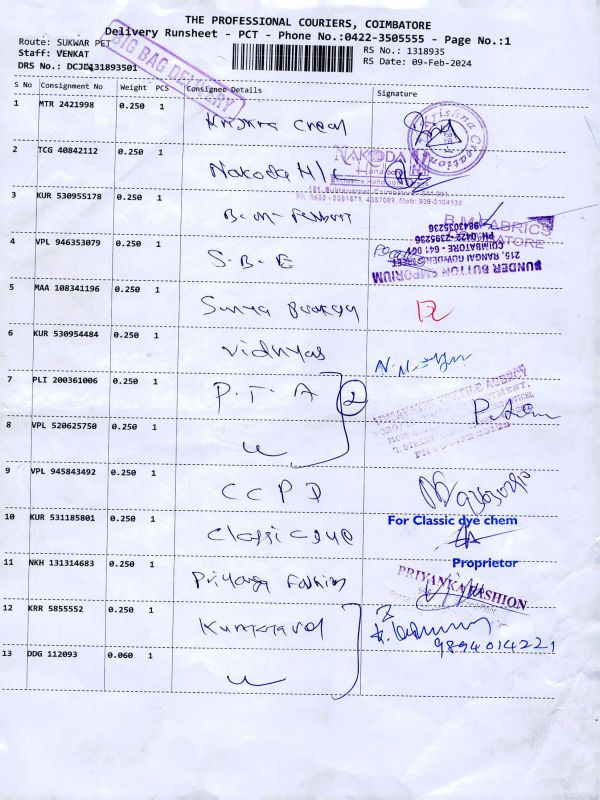 THE PROFESSIONAL COURIERS, COIMBATORE
Delivery Runsheet - PCT - Phone No.:0422-3505555 - Page No.:1
Route: SUKWAR PET
Staff: VENKAT
DRS No.: DCJD431893501
BIG BAG DELIVERY
RS No.: 1318935
RS Date: 09-Feb-2024
S No Consignment No Weight PCS Consignee Details Signature
1 MTR 2421998 0.250 1 Krishna Creat
Krishna Creations
2 TCG 40842112 0.250 1 Nakoda H/L
NAKODA
3 KUR 530955178 0.250 1 B.M. Fabbrics
B.M. FABRICS
COIMBATORE
4 VPL 946353079 0.250 1 S.B.E
SUNDER BUTTON EMPORIUM
215, RANGAI GOWDER STREET
COIMBATORE - 641 001
PH: 0422-2395236
9843035236
5 MAA 108341196 0.250 1 Surya
6 KUR 530954484 0.250 1 Vidhyas
7 PLI 200361006 0.250 1 P.T.A 2
TEXTILE AGENCY
8 VPL 520625750 0.250 1 "
9 VPL 945843492 0.250 1 CCPD
10 KUR 531185801 0.250 1 Classic dye
For Classic dye chem
Proprietor
11 NKH 131314683 0.250 1 Priyanga Fashion
PRIYANKA FASHION
12 KRR 5855552 0.250 1 Kumaravel
9894014221
13 DDG 112093 0.060 1 "